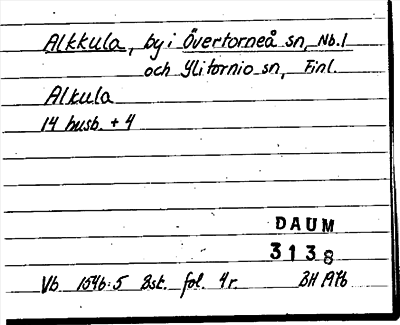 Alkkula, by i Övertorneå sn, Nb.l
och Ylitornio sn, Finl.
Alkula
14 husb. + 4
DAUM
3138
Vb 1546:5 Bst. fol. 4r. BH 1976